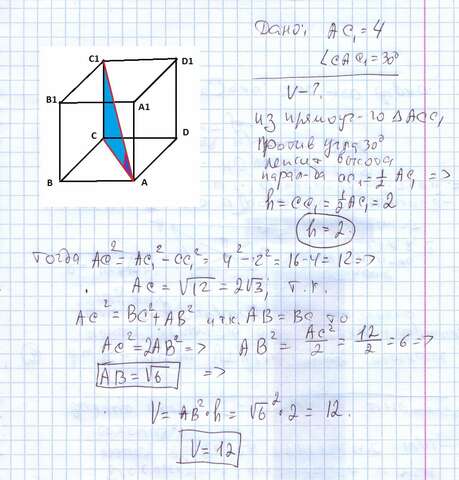 C1
D1
B1
A1
C
D
B
A
Дано: AC₁=4
∠CAC₁=30°
V-?
из прямоуг-го ΔACC₁
против угла 30°
лежит высота
парал-да CC₁=½AC₁ =>
h=CC₁=½AC₁=2
h=2
тогда AC²=AC₁²-CC₁²=4²-2²=16-4=12=>
AC=√12=2√3, т.к.
AC²=BC²+AB² и т.к. AB=BC то
AC²=2AB² => AB²=AC²/2=12/2=6=>
AB=√6 =>
V=AB²·h=√6²·2=12.
V=12